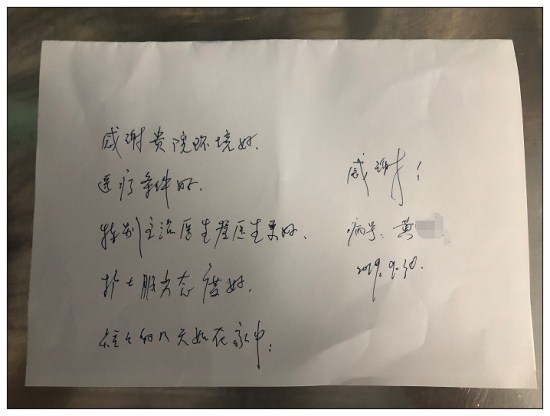 感谢贵院环境好.
医疗条件好.
特别主治医生 医生更好.
护士服务态度好.
住了的几天如在家中;
感谢!
病号: 黄
2019.9.30.